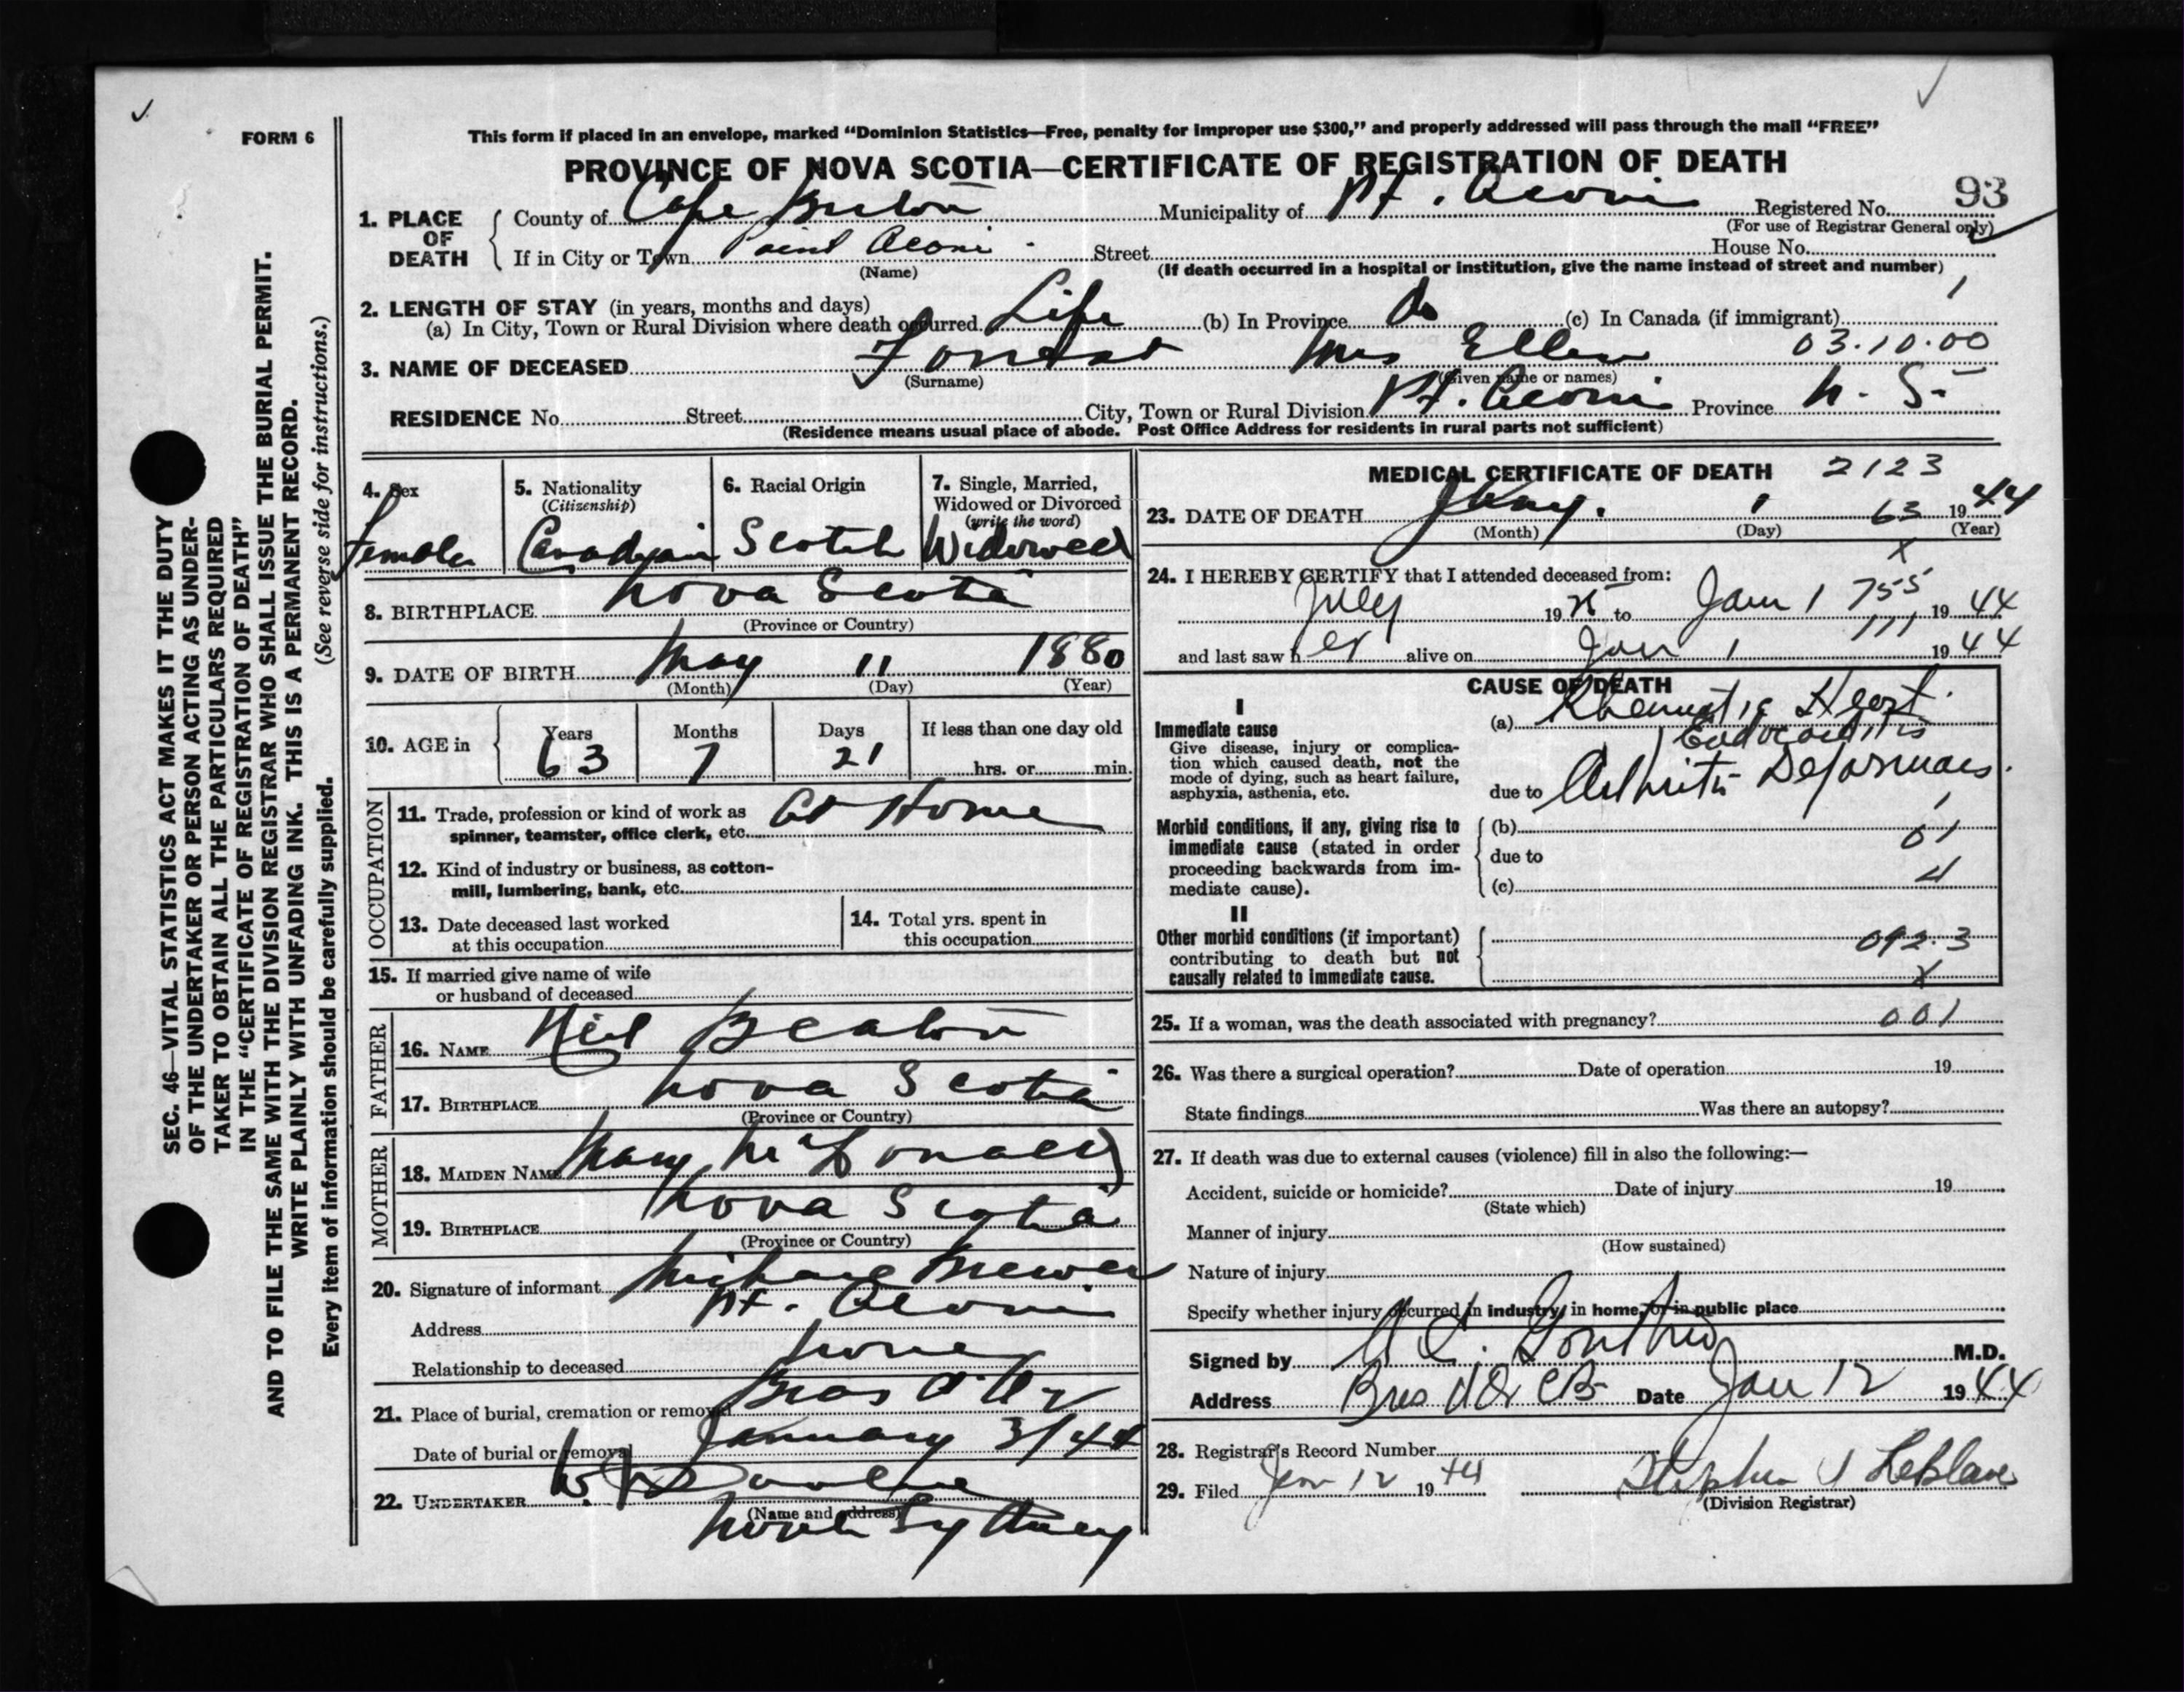 FORM 6
This form if placed in an envelope, marked “Dominion Statistics—Free, penalty for improper use $300,” and properly addressed will pass through the mail “FREE”
PROVINCE OF NOVA SCOTIA—CERTIFICATE OF REGISTRATION OF DEATH
93
1. PLACE OF DEATH
County of Cape Breton Municipality of Pt. Aconi Registered No.
(For use of Registrar General only)
If in City or Town Point Aconi Street House No.
(Name) (If death occurred in a hospital or institution, give the name instead of street and number)
2. LENGTH OF STAY (in years, months and days) 1
(a) In City, Town or Rural Division where death occurred Life (b) In Province Do (c) In Canada (if immigrant)
3. NAME OF DECEASED Mrs Ellen 03.10.00
(Surname) (Given name or names)
RESIDENCE No. Street City, Town or Rural Division Pt. Aconi Province N. S.
(Residence means usual place of abode. Post Office Address for residents in rural parts not sufficient)
4. Sex
Female
5. Nationality
(Citizenship)
Canadian
6. Racial Origin
Scotch
7. Single, Married,
Widowed or Divorced
(write the word)
Widowed
8. BIRTHPLACE Nova Scotia
(Province or Country)
9. DATE OF BIRTH May 11 1880
(Month) (Day) (Year)
10. AGE in
Years Months Days If less than one day old
63 7 21 hrs. or min.
OCCUPATION
11. Trade, profession or kind of work as At Home
spinner, teamster, office clerk, etc.
12. Kind of industry or business, as cotton-
mill, lumbering, bank, etc.
13. Date deceased last worked
at this occupation
14. Total yrs. spent in
this occupation
15. If married give name of wife
or husband of deceased
FATHER
16. NAME Neil Beaton
17. BIRTHPLACE Nova Scotia
(Province or Country)
MOTHER
18. MAIDEN NAME Mary McDonald
19. BIRTHPLACE Nova Scotia
(Province or Country)
20. Signature of informant Michael
Address Pt. Aconi
Relationship to deceased none
21. Place of burial, cremation or removal Bras D'Or
Date of burial or removal January 3/44
22. UNDERTAKER
(Name and address)
North Sydney
MEDICAL CERTIFICATE OF DEATH 2123
23. DATE OF DEATH Jany. 1 63 1944
(Month) (Day) (Year)
x
24. I HEREBY CERTIFY that I attended deceased from:
July 19 to Jan 1 755 19 44
111
and last saw h er alive on Jan 1 19 44
CAUSE OF DEATH
I
Immediate cause
Give disease, injury or complica-
tion which caused death, not the
mode of dying, such as heart failure,
asphyxia, asthenia, etc.
(a) Rheumatic Heart.
Endocarditis
due to Arthritis Deformans.
Morbid conditions, if any, giving rise to
immediate cause (stated in order
proceeding backwards from im-
mediate cause).
(b)
01
due to
(c) 4
II
Other morbid conditions (if important)
contributing to death but not
causally related to immediate cause.
092.3
x
25. If a woman, was the death associated with pregnancy? 001
26. Was there a surgical operation? Date of operation 19
State findings Was there an autopsy?
27. If death was due to external causes (violence) fill in also the following:—
Accident, suicide or homicide? Date of injury 19
(State which)
Manner of injury
(How sustained)
Nature of injury
Specify whether injury occurred in industry, in home, or in public place
Signed by M.D.
Address Bras d'Or CB Date Jan 12 1944
28. Registrar's Record Number
29. Filed Jan 12 19 44 Stephen J LeBlanc
(Division Registrar)
SEC. 46—VITAL STATISTICS ACT MAKES IT THE DUTY
OF THE UNDERTAKER OR PERSON ACTING AS UNDER-
TAKER TO OBTAIN ALL THE PARTICULARS REQUIRED
IN THE “CERTIFICATE OF REGISTRATION OF DEATH”
AND TO FILE THE SAME WITH THE DIVISION REGISTRAR WHO SHALL ISSUE THE BURIAL PERMIT.
WRITE PLAINLY WITH UNFADING INK. THIS IS A PERMANENT RECORD.
Every item of information should be carefully supplied. (See reverse side for instructions.)